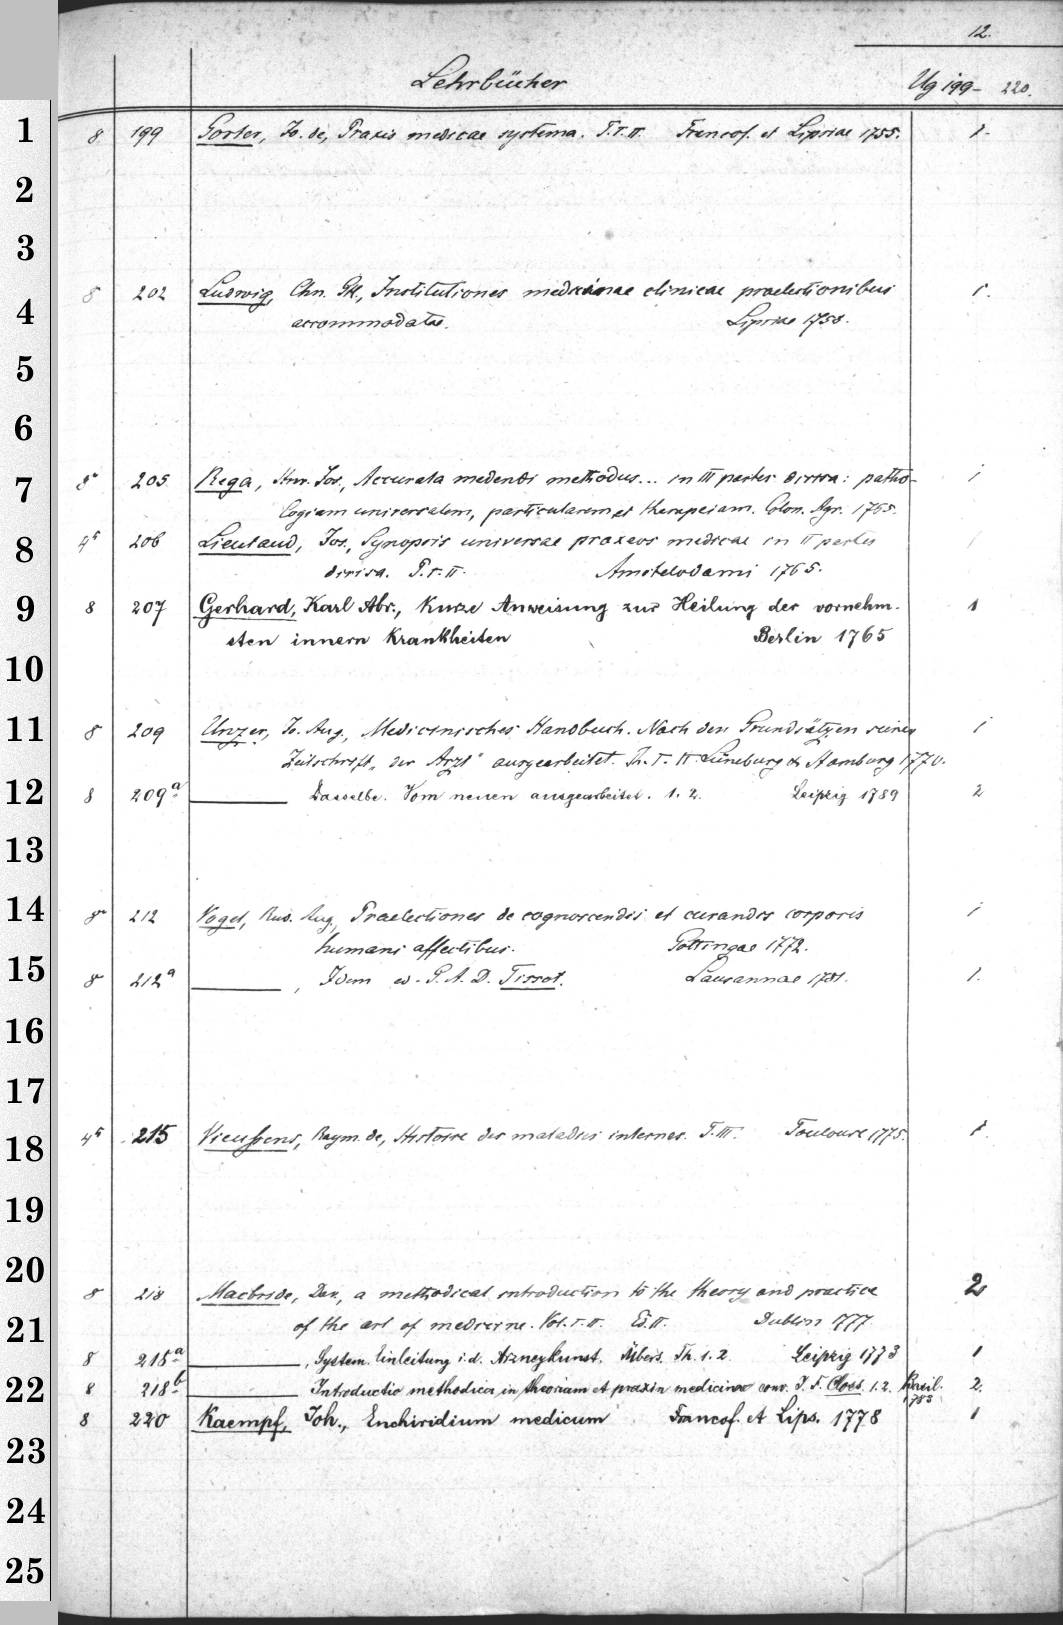 12.
Lehrbücher Ug 199- 220.
1 8 199 Gorter, Jo. de, Praxis medicae systema. T.I.II. Francof. et Lipsiae 1755. 1.
2
3
8 202 Ludwig, Chn. Gtl., Institutiones medicinae clinicae praelectionibus 1.
4 accommodatae. Lipsiae 1758.
5
6
7 8° 205 Rega, Hnr. Jos., Accurata medendi methodus... in III partes divisa: patho- 1
logiam universalem, particularem et therapeiam. Colon. Agr. 1765.
8 4° 206 Lieutaud, Jos., Synopsis universae praxeos medicae in II partes 1
divisa. P.I.II. Amstelodami 1765.
9 8 207 Gerhard, Karl Abr., Kurze Anweisung zur Heilung der vornehm- 1
sten innern Krankheiten Berlin 1765
10
11 8 209 Unzer, Jo. Aug., Medicinisches Handbuch. Nach den Grundsätzen seiner 1
Zeitschrift „der Arzt" ausgearbeitet. Th. I. II. Lüneburg & Hamburg 1770.
12 8 209a ——— Dasselbe. Vom neuen ausgearbeitet. 1. 2. Leipzig 1789 2
13
14 8° 212 Vogel, Rud. Aug., Praelectiones de cognoscendis et curandis corporis 1
humani affectibus. Gottingae 1772.
15 8 212a ———, Idem ed. S. A. D. Tissot. Lausannae 1781. 1.
16
17
18 4° 215 Vieussens, Raym. de, Histoire des maladies internes. T.III. Toulouse 1775. 1.
19
20 8 218 Macbride, Dav., a methodical introduction to the theory and practice 2
21 of the art of medicine. Vol. I. II. Ed. II. Dublin 777
8 218a ———, System. Einleitung i. d. Arzneykunst. Übers. Th. 1. 2. Leipzig 1773 1
22 8 218b ——— Introductio methodica in theoriam et praxin medicinae conv. J. F. Closs. 1. 2. Basil. 2.
1783
8 220 Kaempf, Joh., Enchiridium medicum Francof. et Lips. 1778 1
23
24
25